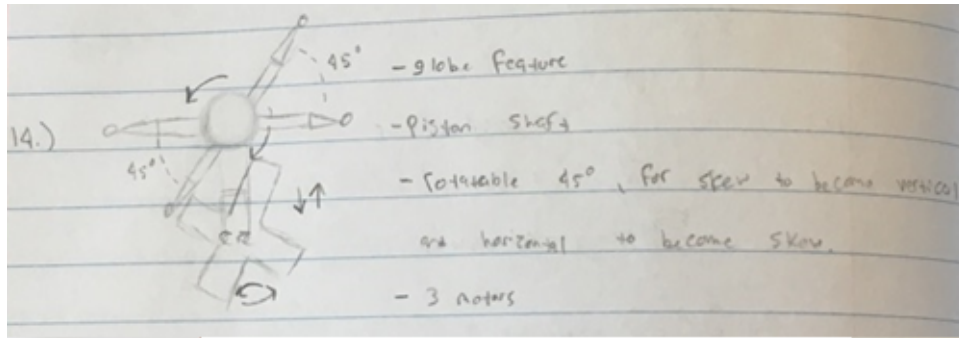 14.)
45°
- globe feature
- Piston shaft
45°
- rotatable 45°, for skew to become vertical
and horizontal to become skew.
- 3 motors